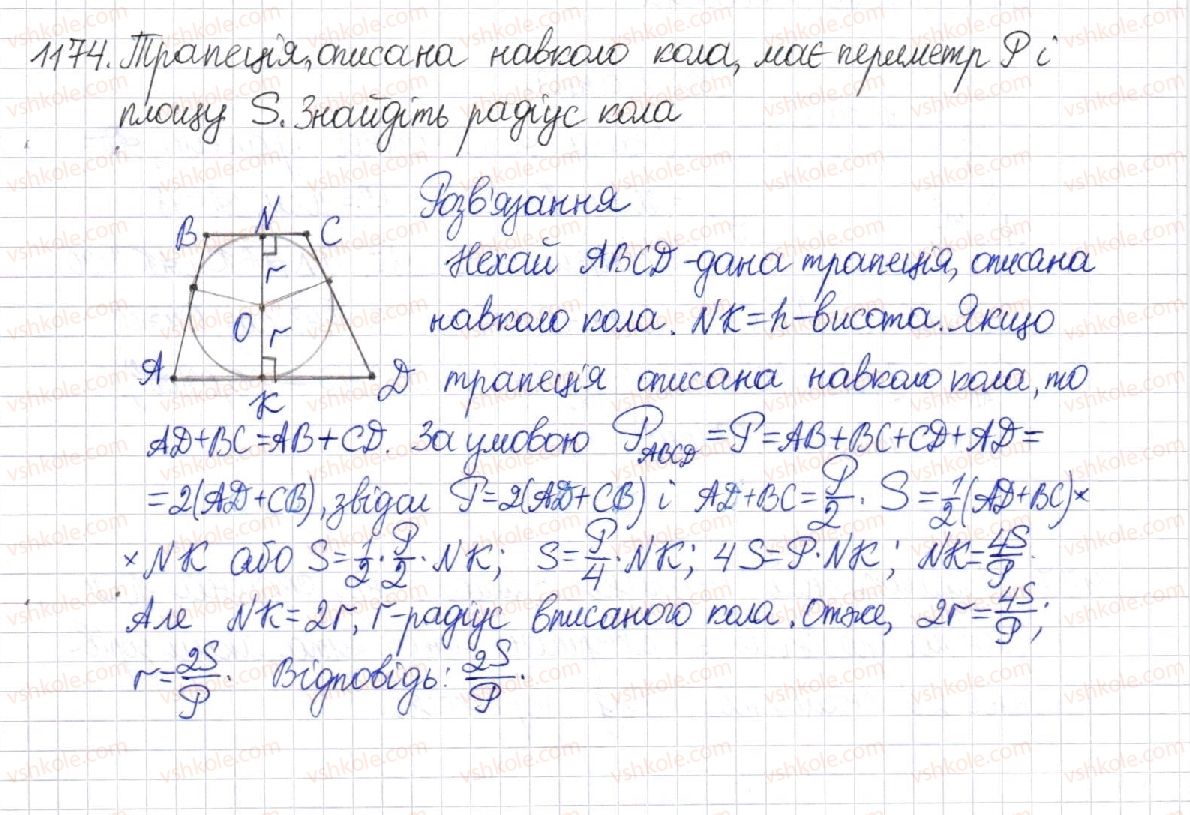 1174. Трапеція, описана навколо кола, має периметр P і
площу S. Знайдіть радіус кола
Розв'язання
B N C
r
O
r
A K D
Нехай ABCD - дана трапеція, описана
навколо кола. NK = h - висота. Якщо
трапеція описана навколо кола, то
AD+BC=AB+CD. За умовою P_ABCD = P = AB+BC+CD+AD =
= 2(AD+CB), звідси P=2(AD+CB) і AD+BC = P/2. S = 1/2(AD+BC)×
× NK або S = 1/2 · P/2 · NK; S = P/4 · NK; 4S = P·NK; NK = 4S/P.
Але NK = 2r, r - радіус вписаного кола. Отже, 2r = 4S/P;
r = 2S/P. Відповідь: 2S/P.
vshkole.com